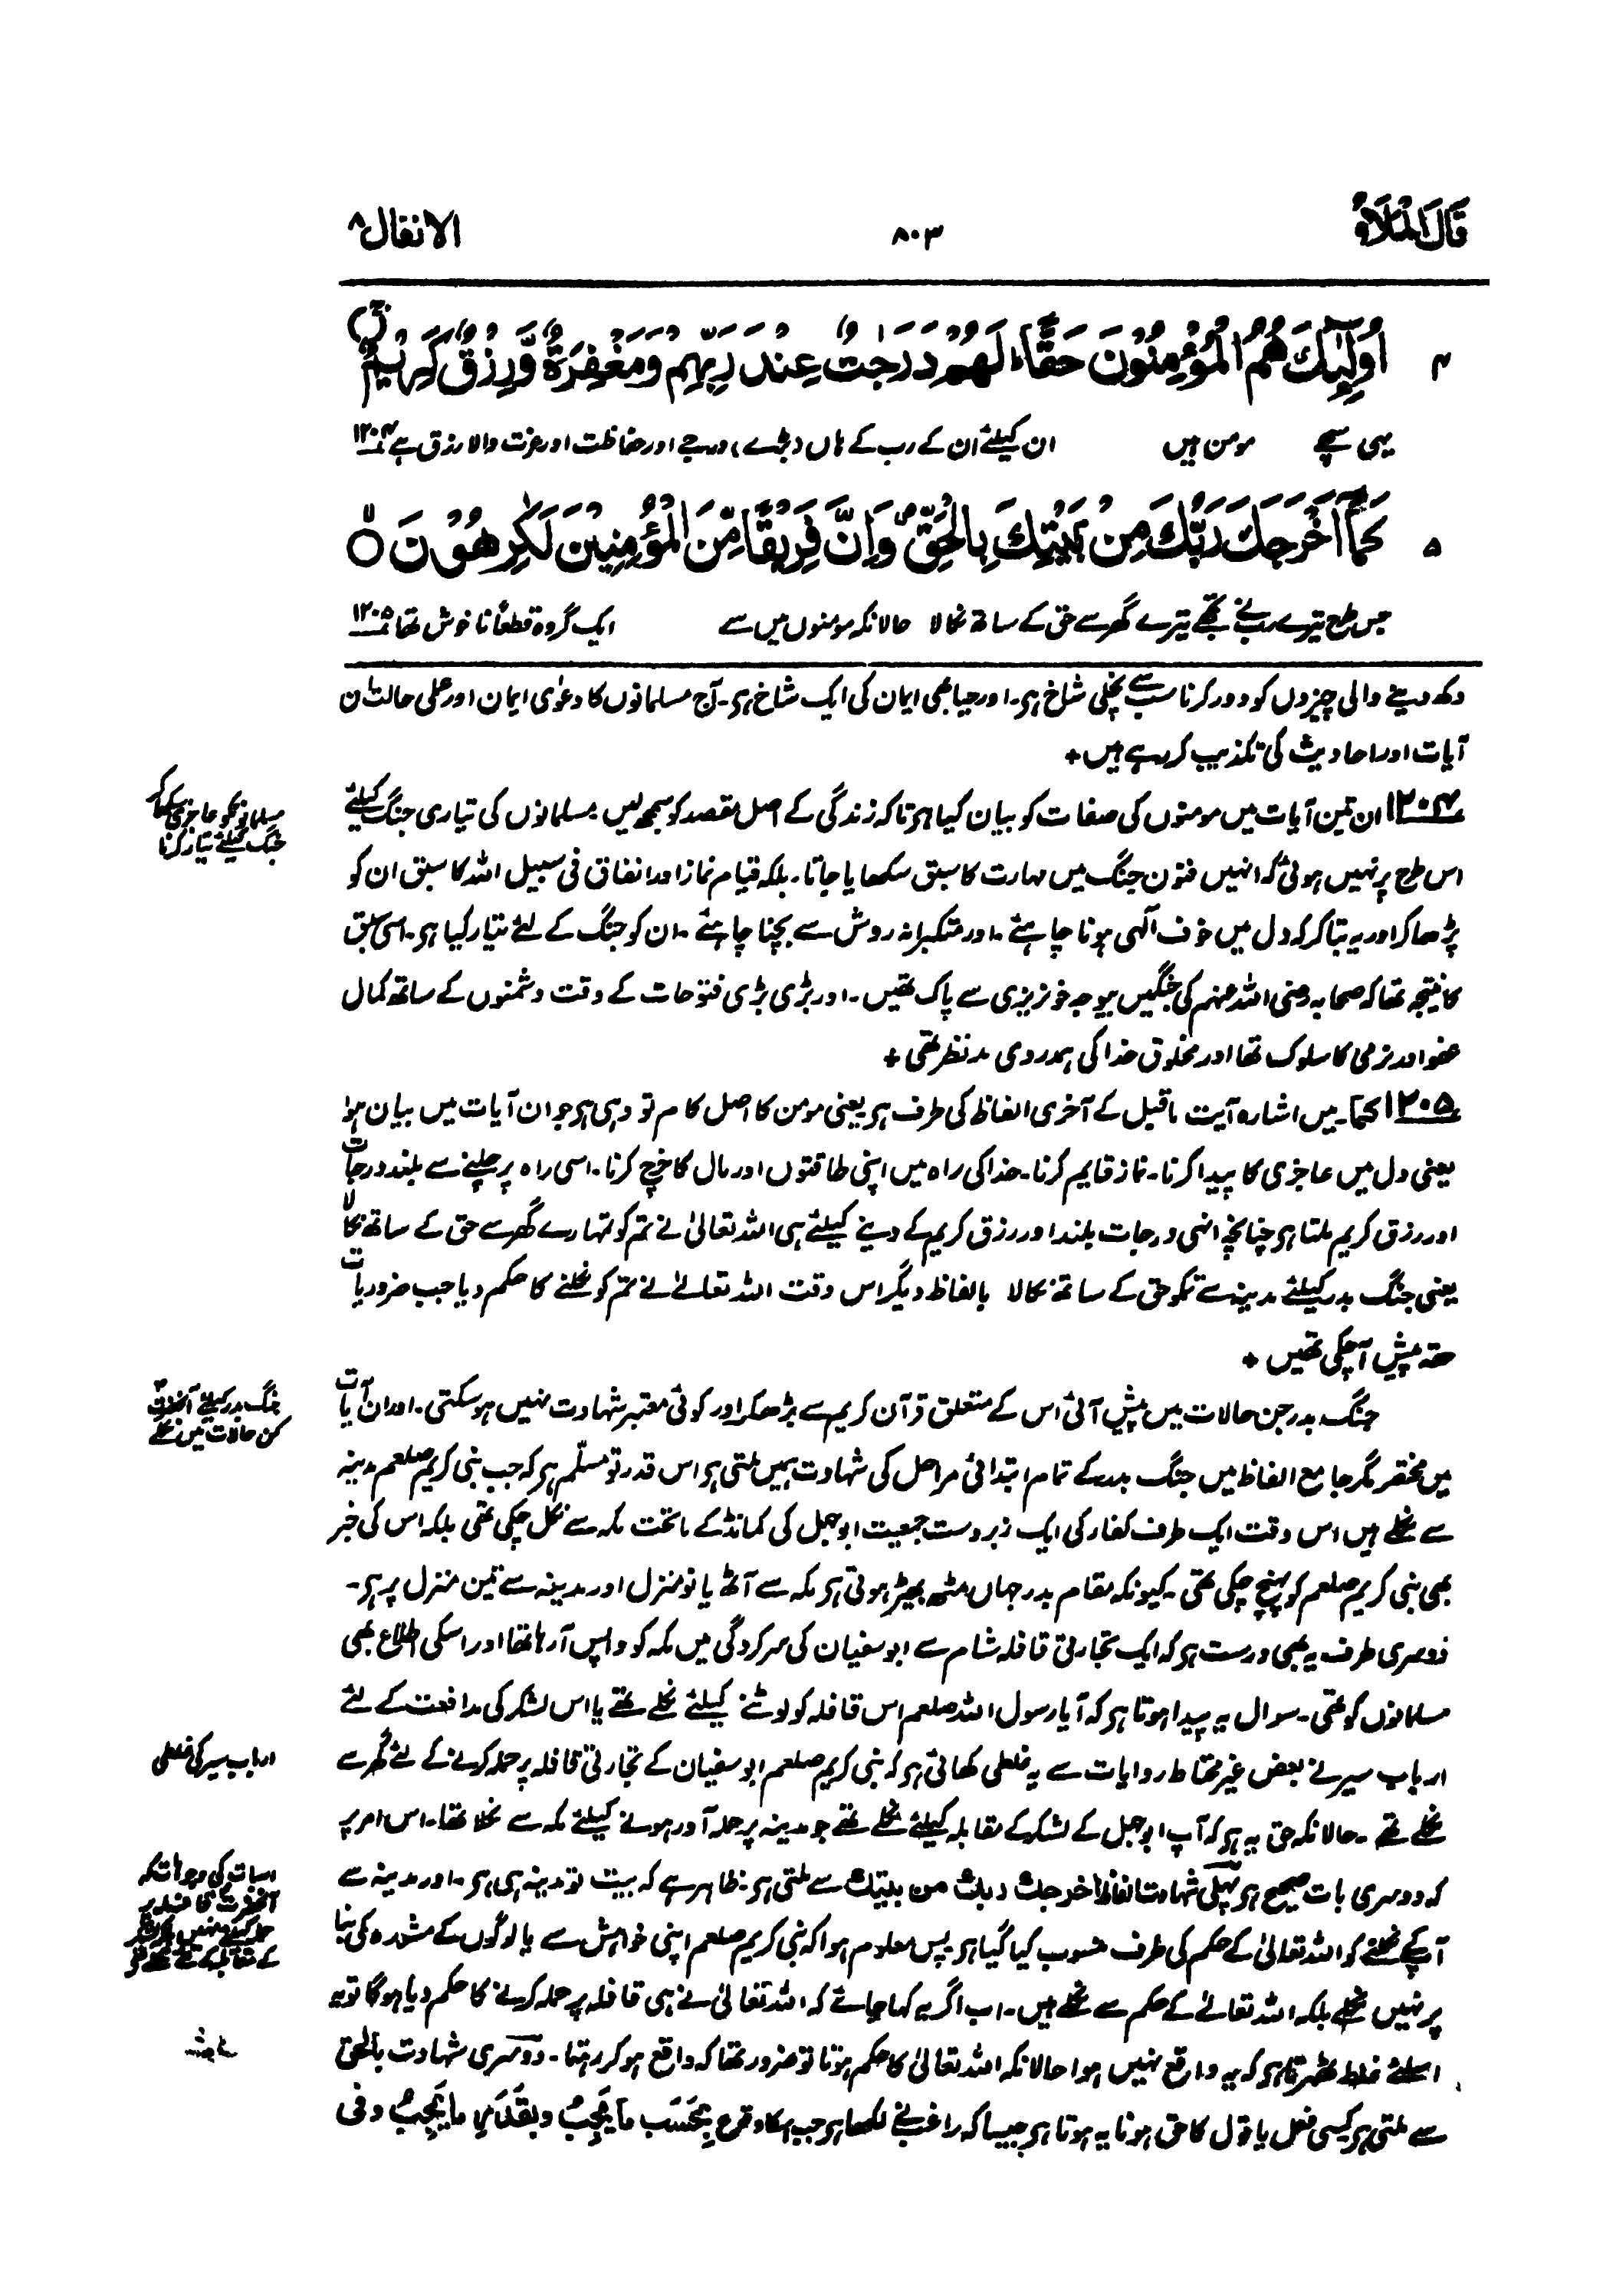 قَالَ الْمَلَأُ
۸۰۳
الانفال ۸
۴ اُولٰٓئِكَ هُمُ الْمُؤْمِنُوْنَ حَقًّا ؕ لَهُمْ دَرَجٰتٌ عِنْدَ رَبِّهِمْ وَمَغْفِرَةٌ وَّرِزْقٌ كَرِيْمٌ
یہی سچے مومن ہیں ان کیلئے ان کے رب کے ہاں (بڑے) درجے اور حفاظت اور عزت والا رزق ہے ۱۲۰۴
۵ كَمَآ اَخْرَجَكَ رَبُّكَ مِنْۢ بَيْتِكَ بِالْحَقِّ ۪ وَاِنَّ فَرِيْقًا مِّنَ الْمُؤْمِنِيْنَ لَكٰرِهُوْنَ ۙ
جس طرح تیرے رب نے تجھے تیرے گھر سے حق کے ساتھ نکالا حالانکہ مومنوں میں سے ایک گروہ قطعاً ناخوش تھا ۱۲۰۵
دکھ دینے والی چیزوں کو دور کرنا سب سے نچلی شاخ ہو۔ اور حیا بھی ایمان کی ایک شاخ ہو۔ آج مسلمانوں کا دعوٰی ایمان اور عملی حالت ان
آیات اور احادیث کی تکذیب کر رہے ہیں +
مسلمانونکو عاجزی سکھا کر
جنگ کیلئے تیار کرنا
۱۲۰۴ ان تین آیات میں مومنوں کی صفات کو بیان کیا ہو تاکہ زندگی کے اصل مقصد کو سمجھ لیں۔ مسلمانوں کی تیاری جنگ کیلئے
اس طرح پر نہیں ہوئی کہ انہیں فنون جنگ میں مہارت کا سبق سکھایا جاتا۔ بلکہ قیام نماز اور انفاق فی سبیل اللہ کا سبق ان کو
پڑھا کر اور یہ بتا کر کہ دل میں خوف الٰہی ہونا چاہئے۔ اور متکبرانہ روش سے بچنا چاہئے۔ ان کو جنگ کے لئے تیار کیا ہو۔ اسی سبق
کا نتیجہ تھا کہ صحابہ رضی اللہ عنہم کی جنگیں بیوجہ خونریزی سے پاک تھیں۔ اور بڑی بڑی فتوحات کے وقت دشمنوں کے ساتھ کمال
عفو اور نرمی کا سلوک تھا اور مخلوق خدا کی ہمدردی مدنظر تھی +
۱۲۰۵ کما۔ میں اشارہ آیت ماقبل کے آخری الفاظ کی طرف ہو یعنی مومن کا اصل کام تو وہی ہو جو ان آیات میں بیان ہوا
یعنی دل میں عاجزی کا پیدا کرنا۔ نماز قایم کرنا۔ خدا کی راہ میں اپنی طاقتوں اور مال کا خرچ کرنا۔ اسی راہ پر چلنے سے بلند درجات
اور رزق کریم ملتا ہو چنانچہ انہی درجات بلند اور رزق کریم کے دینے کیلئے ہی اللہ تعالیٰ نے تم کو تمہارے گھر سے حق کے ساتھ نکالا
یعنی جنگ بدر کیلئے مدینہ سے تمکو حق کے ساتھ نکالا بالفاظ دیگر اس وقت اللہ تعالےٰ نے تم کو نکلنے کا حکم دیا جب ضروریات
حقہ پیش آچکی تھیں +
جنگ بدر کیلئے آنحضرت
کن حالات میں نکلے
جنگ بدر جن حالات میں پیش آئی اس کے متعلق قرآن کریم سے بڑھکر اور کوئی معتبر شہادت نہیں ہو سکتی۔ اور ان آیات
میں مختصر مگر جامع الفاظ میں جنگ بدر کے تمام ابتدائی مراحل کی شہادت ہمیں ملتی ہو اس قدر تو مسلّم ہو کہ جب نبی کریم صلعم مدینہ
سے نکلے ہیں اس وقت ایک طرف کفار کی ایک زبردست جمعیت ابوجہل کی کمانڈ کے ماتحت مکہ سے نکل چکی تھی بلکہ اس کی خبر
بھی نبی کریم صلعم کو پہنچ چکی تھی۔ کیونکہ مقام بدر جہاں مٹھ بھیڑ ہوتی ہو مکہ سے آٹھ یا نو منزل اور مدینہ سے تین منزل پر ہو۔
دوسری طرف یہ بھی درست ہو کہ ایک تجارتی قافلہ شام سے ابوسفیان کی سرکردگی میں مکہ کو واپس آرہا تھا اور اسکی اطلاع بھی
مسلمانوں کو تھی۔ سوال یہ پیدا ہوتا ہو کہ آیا رسول اللہ صلعم اس قافلہ کو لوٹنے کیلئے نکلے تھے یا اس لشکر کی مدافعت کے لئے
ارباب سیر کی غلطی
ارباب سیر نے بعض غیر محتاط روایات سے یہ غلطی کھائی ہو کہ نبی کریم صلعم ابوسفیان کے تجارتی قافلہ پر حملہ کرنے کے لئے گھر سے
نکلے تھے۔ حالانکہ حق یہ ہو کہ آپ ابوجہل کے لشکر کے مقابلہ کیلئے نکلے تھے جو مدینہ پر حملہ آور ہونے کیلئے مکہ سے نکلا تھا۔ اس امر پر
اسبات کی وجوہات کہ
آنحضرت قافلہ پر
حملہ کیلئے نہیں بلکہ لشکر
کے مقابلہ کے لئے نکلے تھے
کہ دوسری بات صحیح ہو پہلی شہادت الفاظ اخرجک ربک من بیتک سے ملتی ہو۔ ظاہر ہے کہ بیت تو مدینہ ہی ہو۔ اور مدینہ سے
آپکے نکلنے کو اللہ تعالیٰ کے حکم کی طرف منسوب کیا گیا ہو پس معلوم ہوا کہ نبی کریم صلعم اپنی خواہش سے یا لوگوں کے مشورہ کی بنا
پر نہیں نکلے بلکہ اللہ تعالےٰ کے حکم سے نکلے ہیں۔ اب اگر یہ کہا جائے کہ اللہ تعالیٰ نے ہی قافلہ پر حملہ کرنے کا حکم دیا ہوگا تو یہ
اسلئے غلط ٹھہرتا ہو کہ یہ واقع نہیں ہوا حالانکہ اللہ تعالیٰ کا حکم ہوتا تو ضرور تھا کہ واقع ہو کر رہتا۔ دوسری شہادت بالحق
سے ملتی ہو کیسی فعل یا قول کا حق ہونا یہ ہوتا ہو جیسا کہ راغب نے لکھا ہو جب اسکا وقوع بِحَسَبِ مَا یَجِبُ وبقَدَرِ مَا یَجِبُ وفی